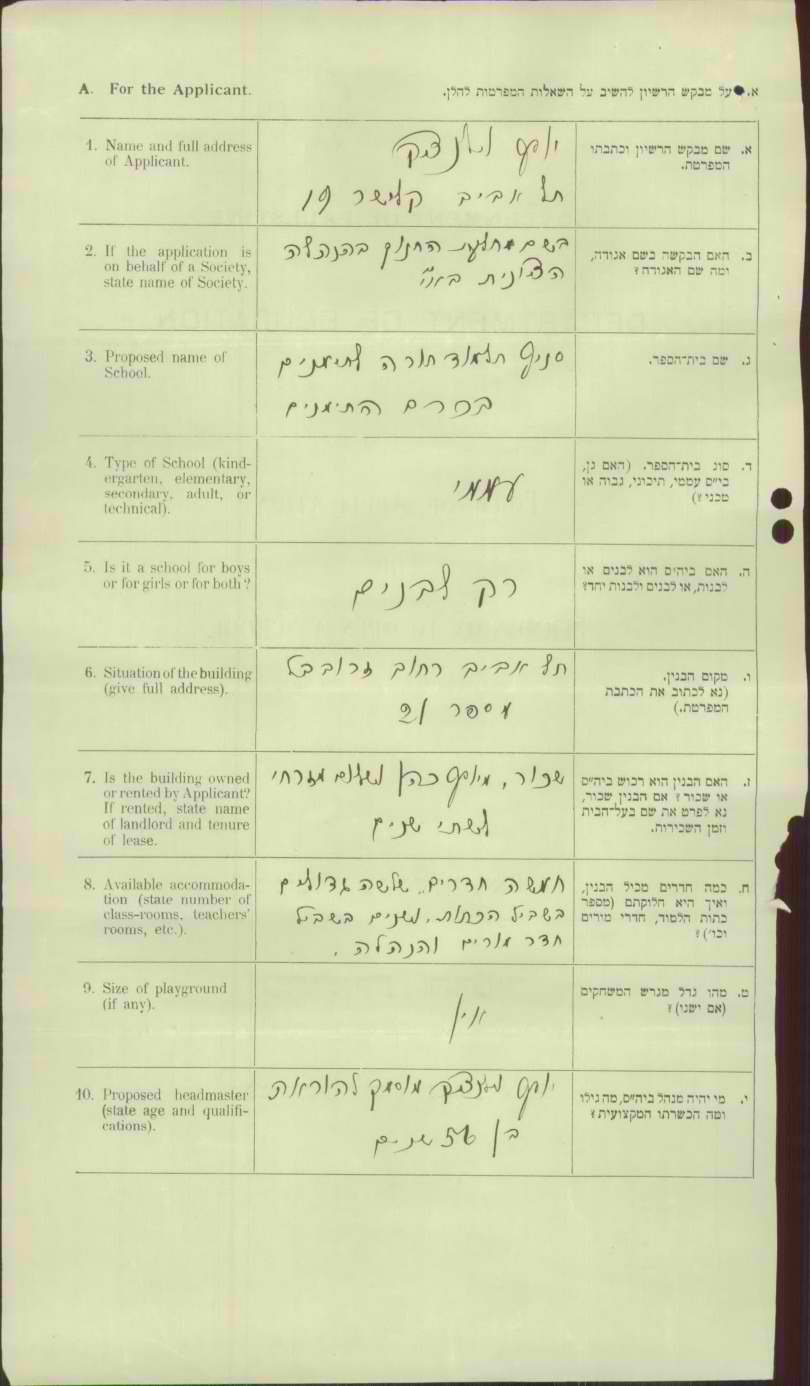 A. For the Applicant.
א. על מבקש הרשיון להשיב על השאלות המפרטות להלן.
1. Name and full address
of Applicant.
יוסף
תל אביב קלישר 19
א. שם מבקש הרשיון וכתבתו
המפרטת.
2. If the application is
on behalf of a Society,
state name of Society.
בשם מחלקת החנוך בהנהלה
הציונית בא״י
ב. האם הבקשה בשם אגודה,
ומה שם האגודה?
3. Proposed name of
School.
סניף תלמוד תורה לתימנים
בכרם התימנים
ג. שם בית־הספר.
4. Type of School (kind-
ergarten, elementary,
secondary, adult, or
technical).
עממי
ד. סוג בית־הספר. (האם גן,
בי״ס עממי, תיכוני, גבוה או
טכני?)
5. Is it a school for boys
or for girls or for both?
רק לבנים
ה. האם ביה״ס הוא לבנים או
לבנות, או לבנים ולבנות יחד?
6. Situation of the building
(give full address).
תל אביב רחוב זרובבל
מספר 21
ו. מקום הבנין.
(נא לכתוב את הכתבת
המפרטת.)
7. Is the building owned
or rented by Applicant?
If rented, state name
of landlord and tenure
of lease.
שכור, מיוסף כהן ושלום מזרחי
לשתי שנים
ז. האם הבנין הוא רכוש ביה״ס
או שכור? אם הבנין שכור,
נא לפרט את שם בעל־הבית
וזמן השכירות.
8. Available accommoda-
tion (state number of
class-rooms, teachers'
rooms, etc.).
חמשה חדרים. שלשה גדולים
בשביל הכתות, ושנים בשביל
חדר מורים והנהלה.
ח. כמה חדרים מכיל הבנין,
ואיך היא חלוקתם (מספר
כתות הלמוד, חדרי מורים
וכו׳)?
9. Size of playground
(if any).
אין
ט. מהו גדל מגרש המשחקים
(אם ישנו)?
10. Proposed headmaster
(state age and qualifi-
cations).
יוסף מוסמך להוראות
בן 56 שנים
י. מי יהיה מנהל ביה״ס, מה גילו
ומה הכשרתו המקצועית?